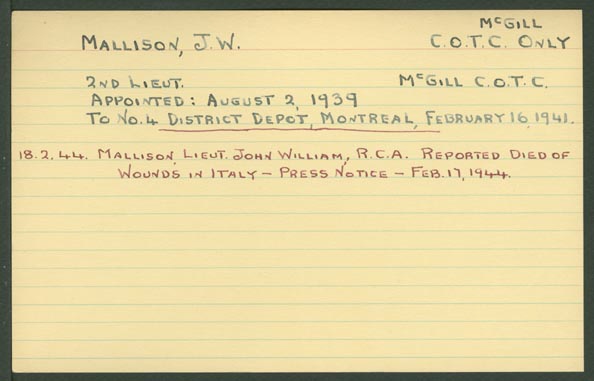 McGILL
MALLISON, J.W. C.O.T.C. ONLY
2ND LIEUT. McGILL C.O.T.C.
APPOINTED: AUGUST 2, 1939
TO NO.4 DISTRICT DEPOT, MONTREAL, FEBRUARY 16, 1941.
18.2.44. MALLISON, LIEUT. JOHN WILLIAM, R.C.A. REPORTED DIED OF
WOUNDS IN ITALY – PRESS NOTICE – FEB. 17, 1944.